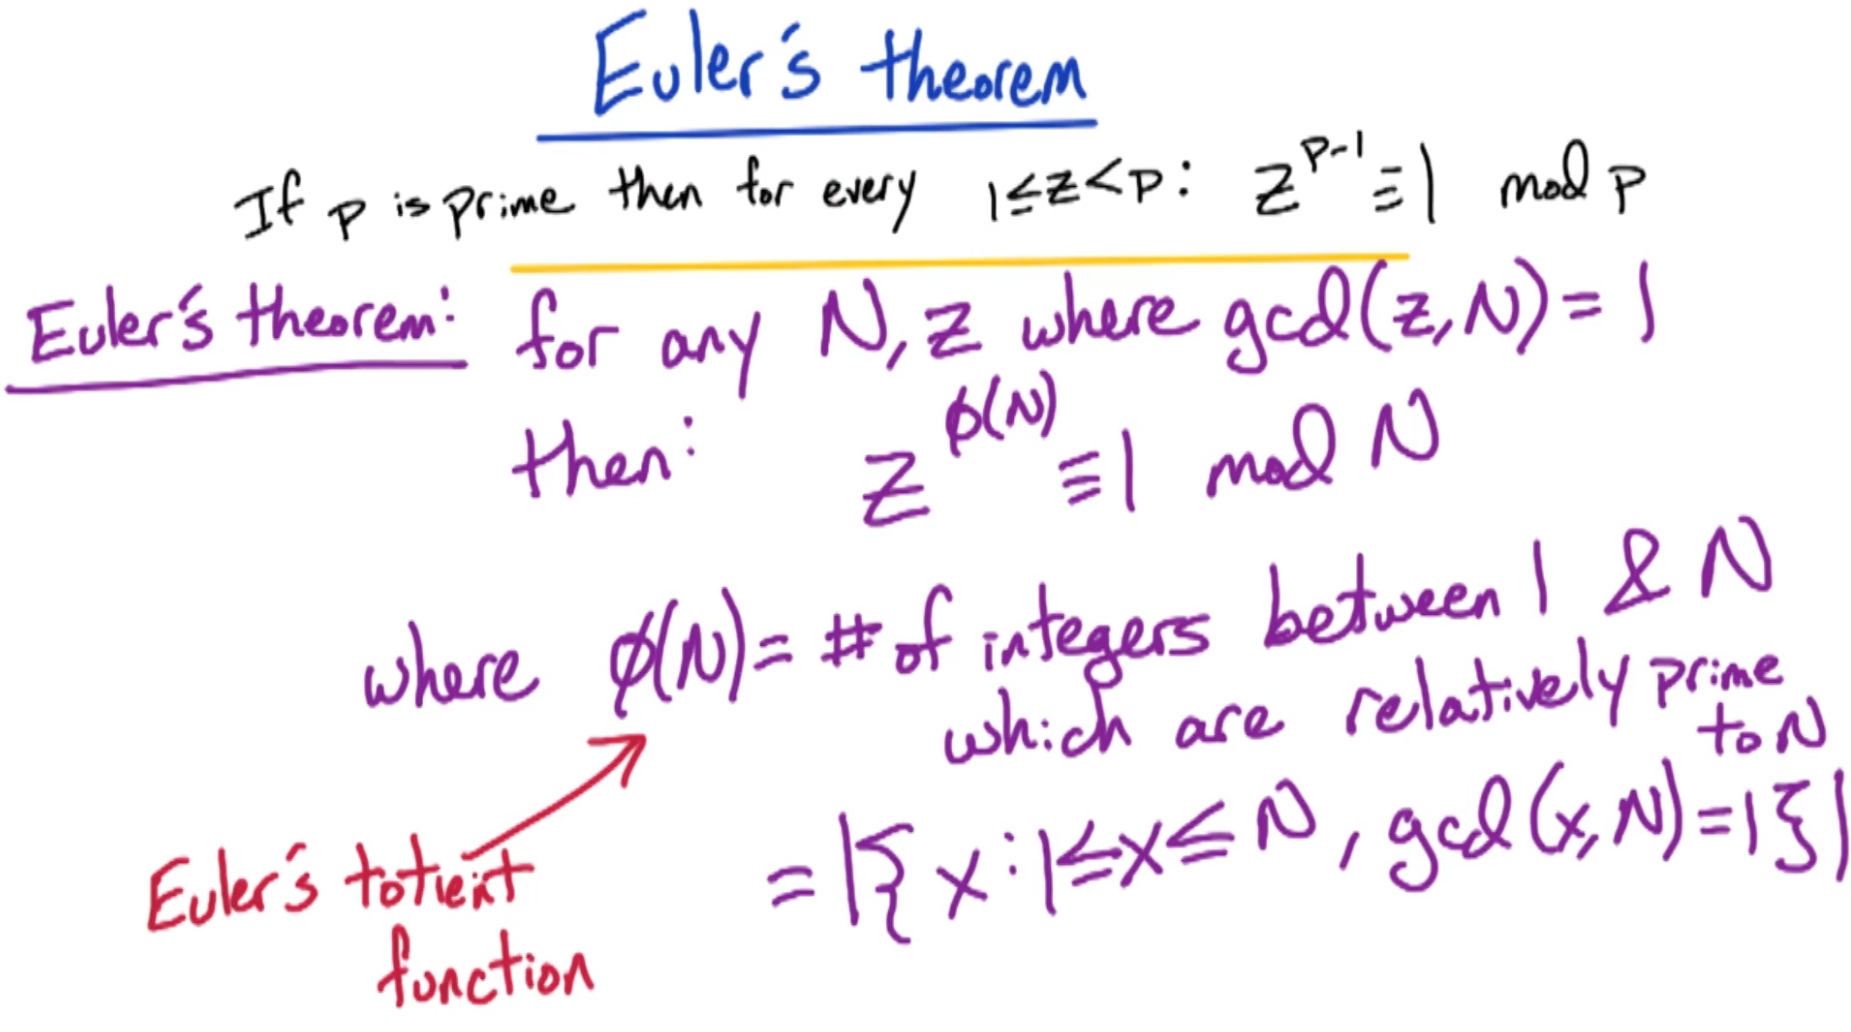 Euler's theorem
If p is prime then for every 1≤z<p: z^{p-1} ≡ 1 mod p
Euler's theorem: for any N, z where gcd(z, N) = 1
then: z^{ϕ(N)} ≡ 1 mod N
where ϕ(N) = # of integers between 1 & N
which are relatively prime
to N
= |{x : 1≤x≤N, gcd(x, N) = 1}|
Euler's totient
function